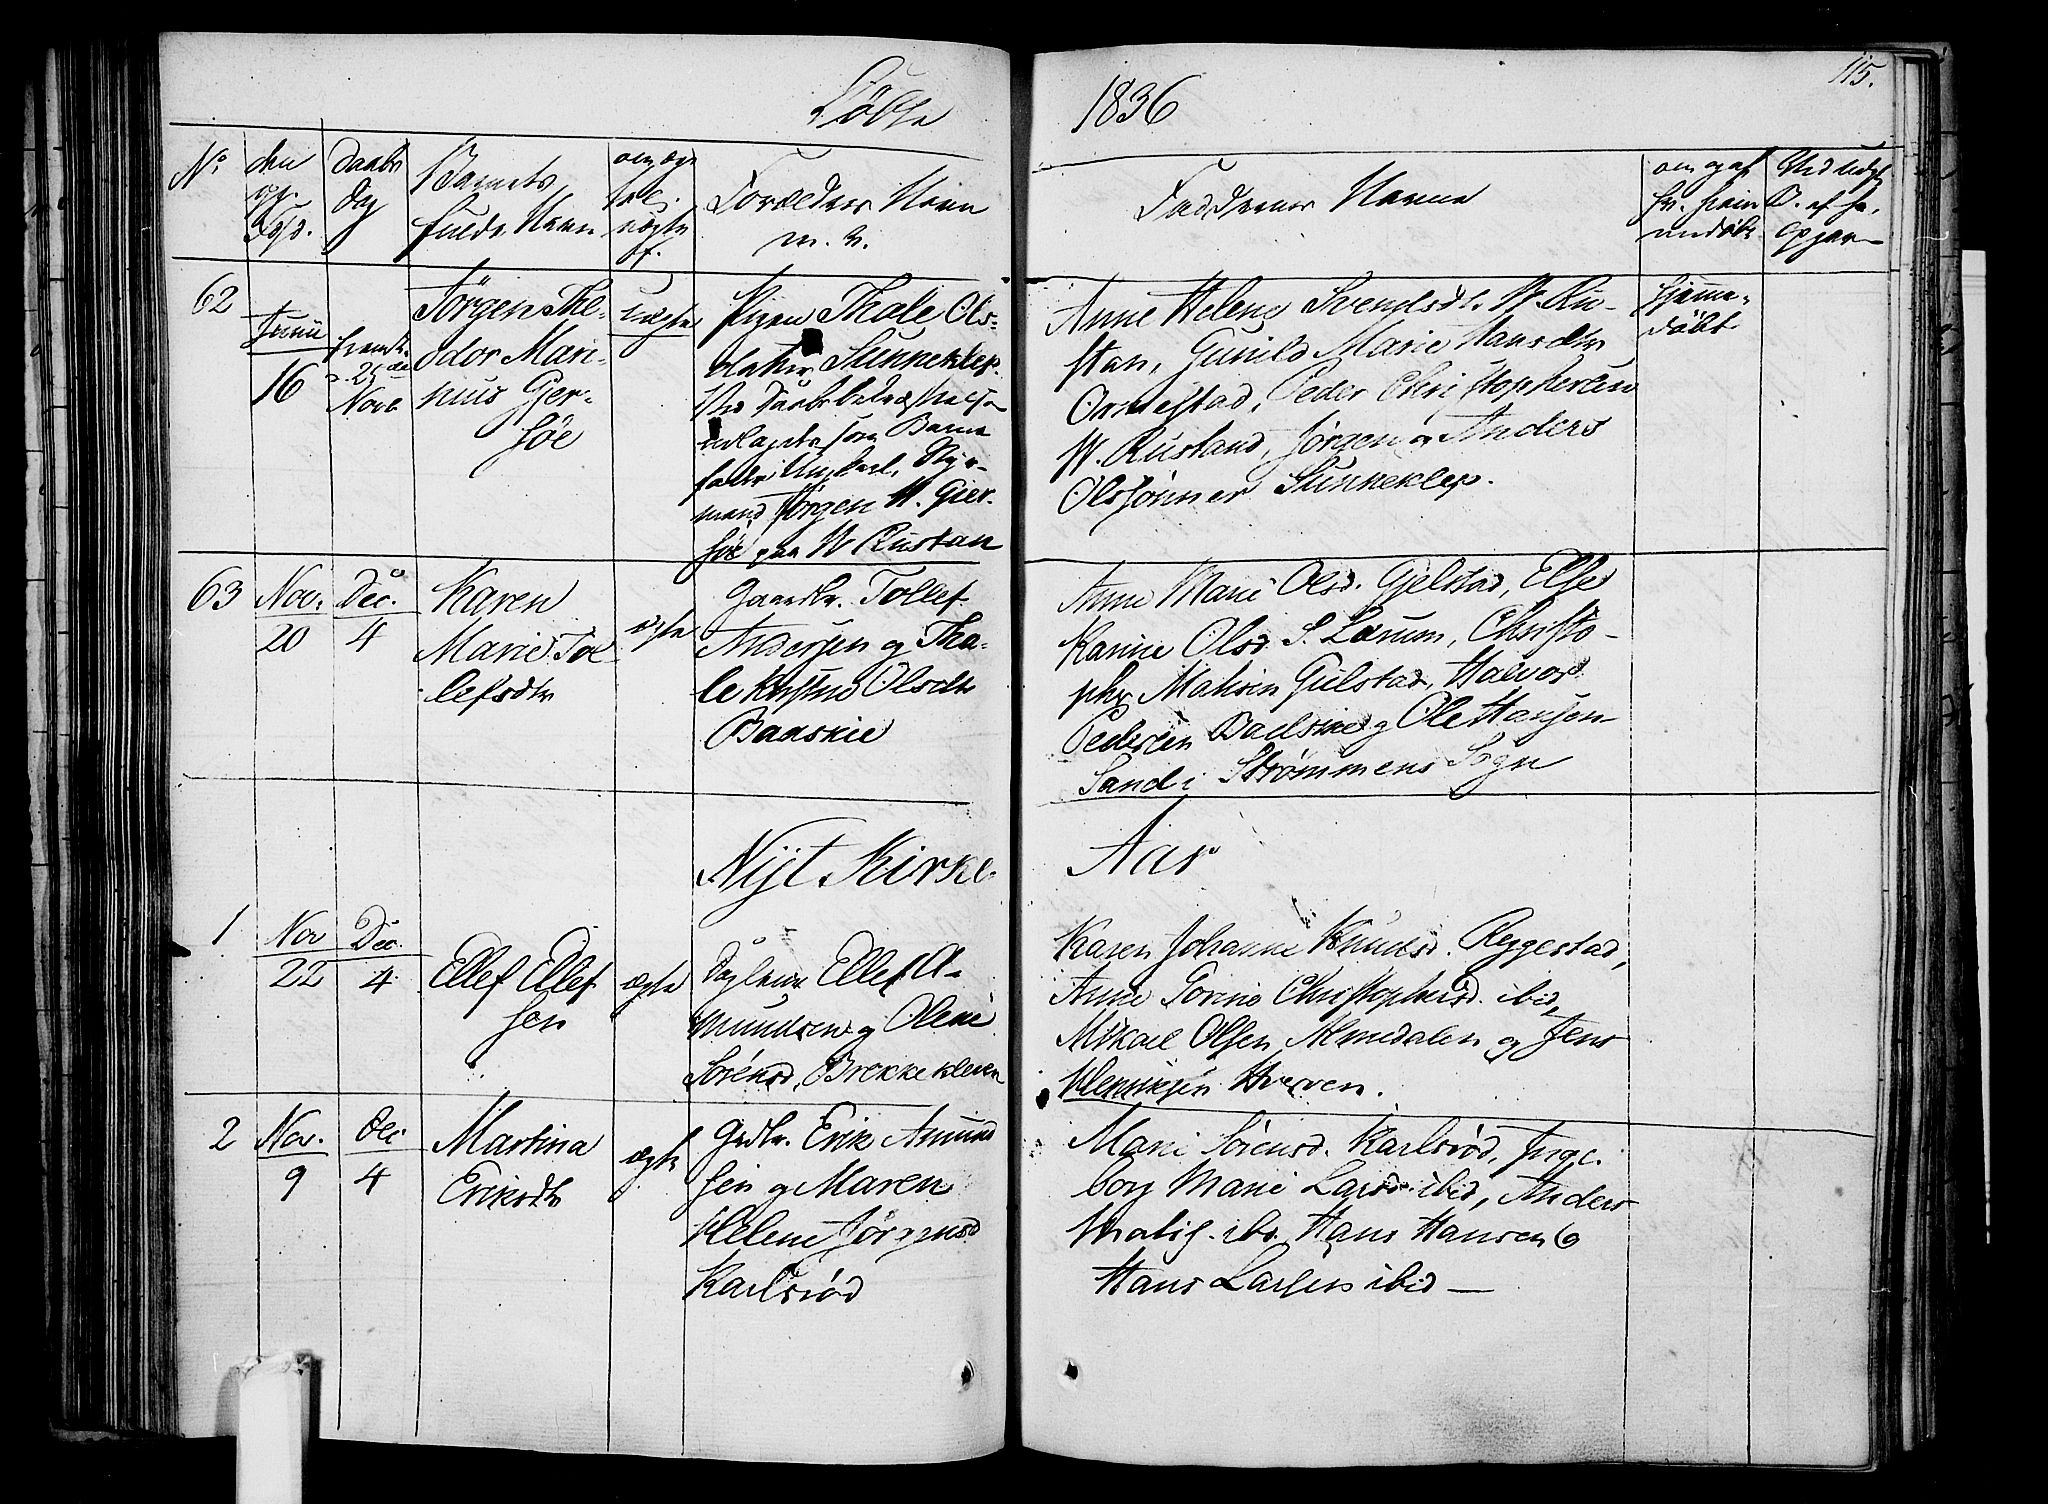 Döbte 1836
115.
No
den
Daabs
dag
Barnets
fulde Navn
om ægte
el.
uægte
f.
Forældres Navn
m. v.
Faddernes Navne
62
Junii
16
fremst.
d. 25de
Nov
Jörgen The-
odor Mari-
nus Gjer-
söe
uægte
Pigen Thale Ols-
datter Sunneklep.
Ved Daabsbekræftelsen
udlagt som Barne
fader Ungkarl, Styr-
mand Jörgen H. Gier-
söe paa W Rustan
Anne Helene Svendsdt. W. Ru-
stan, Gunild Marie Hansdtr
Ormestad, Peder Christophersen
W. Rustand, Jörgen og Anders
Olssönner Sunneklep.
hjemme-
döbt
63
Nov.
20
Dec.
4
Karen
Marie Tol-
lefsdtr
ægte
Gaardbr. Tollef
Andersen og Tha-
le Kirstine Olsdtr
Baaskie
Anne Marie Olsd. Gjelstad, Else
Karine Olsd. S. Larum, Christo-
pher Mahsen Gielstad, Halvor
Pedersen Baaskie og Ole Hansen
Sand i Strömmens Sogn
Nyt Kirke- Aar
1
Nov
22
Dec.
4
Ellef Ellef
sen
ægte
Daglener Ellef A-
mundsen og Olene
Sörensd. Brekkekleven
Karen Johanne Knudsd. Ryggestad,
Anne Torine Christophersd. ibid,
Mikael Olsen Almedalen og Jens
Henriksen Hverven.
2
Nov.
9
Dec
4
Martina
Eriksdtr
ægte
Grdbr. Erik Amund
sen og Maren
Helene Jörgensd
Karlsröd
Marie Sörensd. Karlsröd, Inge-
borg Marie Larsd. ibid, Anders
Mathis. ibd. Hans Hansen og
Hans Larsen ibid —